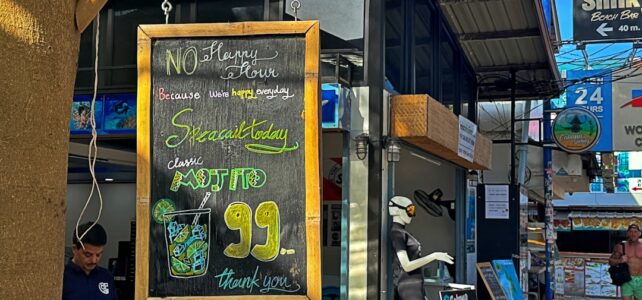 NO Happy
Hour
Because We're happy everyday
Speacail today
classic
MOJITO
99.-
thank you
BEACH BAR
40 m.
24
HOURS
WO